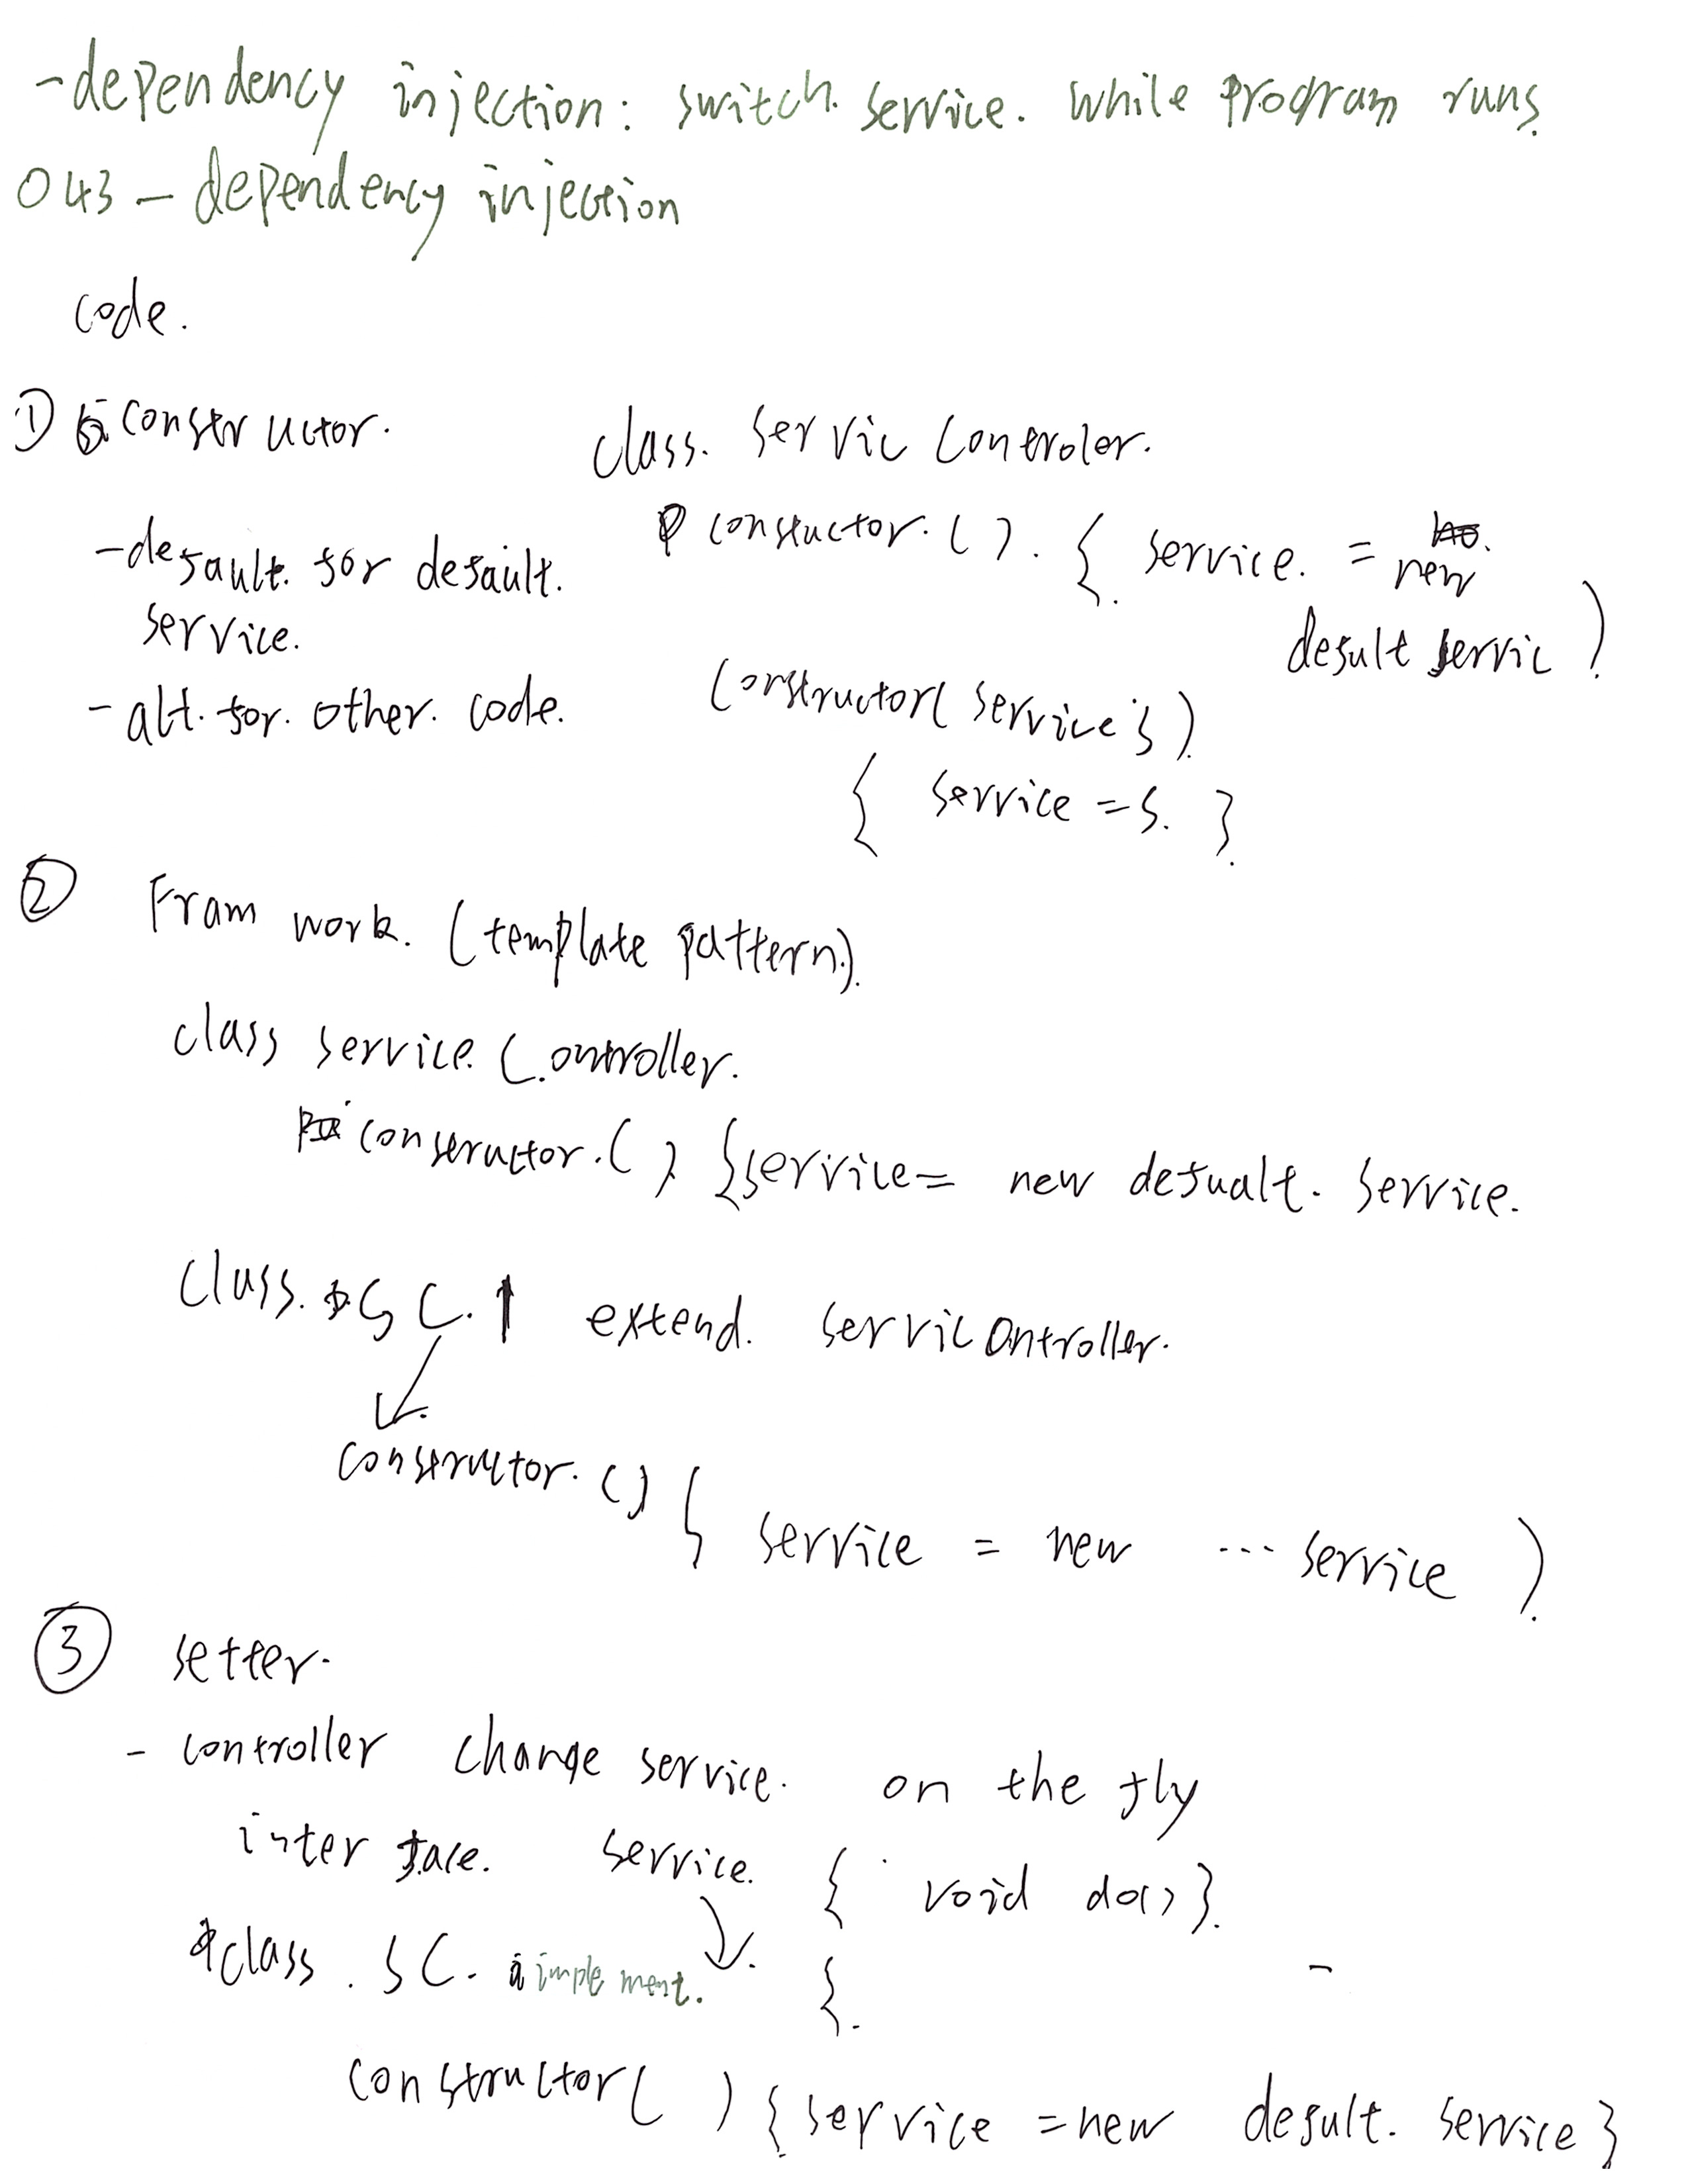 -dependency injection: switch. service. while program runs.
043 - dependency injection
code.
① constructor.
class. servic controler.
constuctor. ( ). { service. = new
- default. for defailt.
service.
defult servic )
- alt. for. other. code.
constructor( service s )
{ service = s. }
② Fram work. (template pattern.)
class service Controller.
constructor. ( ) { service = new defualt. service.
class. SC. 1 extend. servicontroller.
constructor. ( ) { service = new ... service )
③ setter.
- controller change service. on the fly
inter face. service. { void do() }.
class. SC. implement. {.
constructor( ) { service = new defult. service }